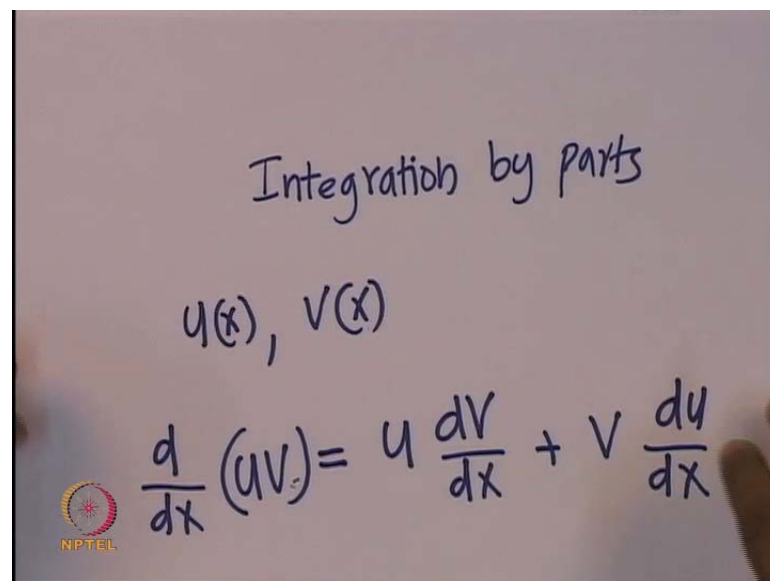 Integration by parts
u(x), v(x)
d/dx (uv) = u dv/dx + v du/dx
NPTEL